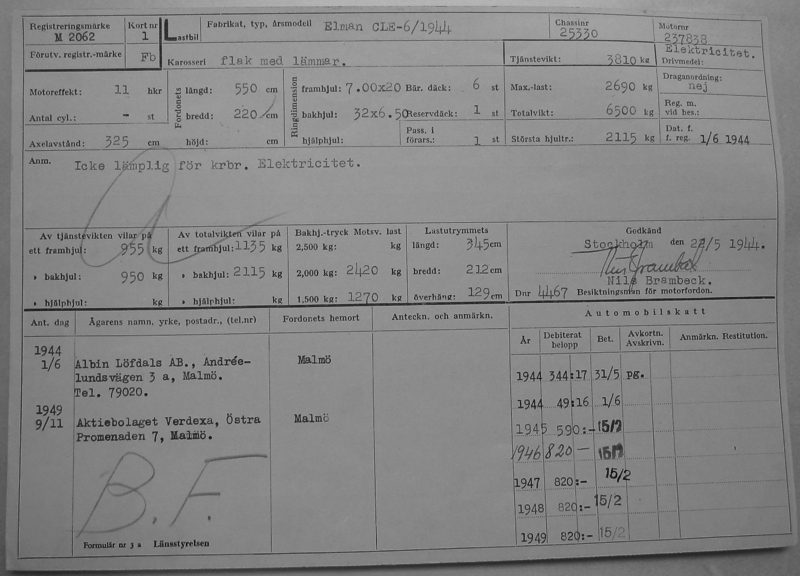 Registreringsmärke M 2062 Kort nr 1 Lastbil Fabrikat, typ, årsmodell Elman CLE-6/1944 Chassinr 25330 Motornr 237838
Förutv. registr.-märke Fb Karosseri flak med lämmar. Tjänstevikt: 3810 kg Elektricitet. Drivmedel:
Motoreffekt: 11 hkr Fordonets längd: 550 cm Ringdimension framhjul: 7.00x20 Bär. däck: 6 st Max.-last: 2690 kg Draganordning: nej
Antal cyl.: - st bredd: 220 cm bakhjul: 32x6.50 Reservdäck: 1 st Totalvikt: 6500 kg Reg. m. vid bes.:
Axelavstånd: 325 cm höjd: cm hjälphjul: Pass. i förars.: 1 st Största hjultr.: 2115 kg Dat. f. f. reg. 1/6 1944
Anm. Icke lämplig för krbr. Elektricitet.
Av tjänstevikten vilar på Av totalvikten vilar på Bakhj.-tryck Motsv. last Lastutrymmets Godkänd
ett framhjul: 955 kg ett framhjul: 1135 kg 2,500 kg: kg längd: 345 cm Stockholm den 22/5 1944.
» bakhjul: 950 kg » bakhjul: 2115 kg 2,000 kg: 2420 kg bredd: 212 cm Nils Brambeck.
» hjälphjul: kg » hjälphjul: kg 1,500 kg: 1270 kg överhäng: 129 cm Dnr 4467 Besiktningsman för motorfordon.
Ant. dag Ägarens namn, yrke, postadr., (tel.nr) Fordonets hemort Anteckn. och anmärkn. Automobilskatt
År Debiterat belopp Bet. Avkortn. Avskrivn. Anmärkn. Restitution.
1944
1/6 Albin Löfdals AB., Andrée- Malmö
lundsvägen 3 a, Malmö.
Tel. 79020.
1949
9/11 Aktiebolaget Verdexa, Östra Malmö
Promenaden 7, Malmö.
B.F.
1944 344:17 31/5 pg.
1944 49:16 1/6
1945 590:- 15/2
1946 820 - 15/2
1947 820:- 15/2
1948 820:- 15/2
1949 820:- 15/2
Formulär nr 3 a Länsstyrelsen